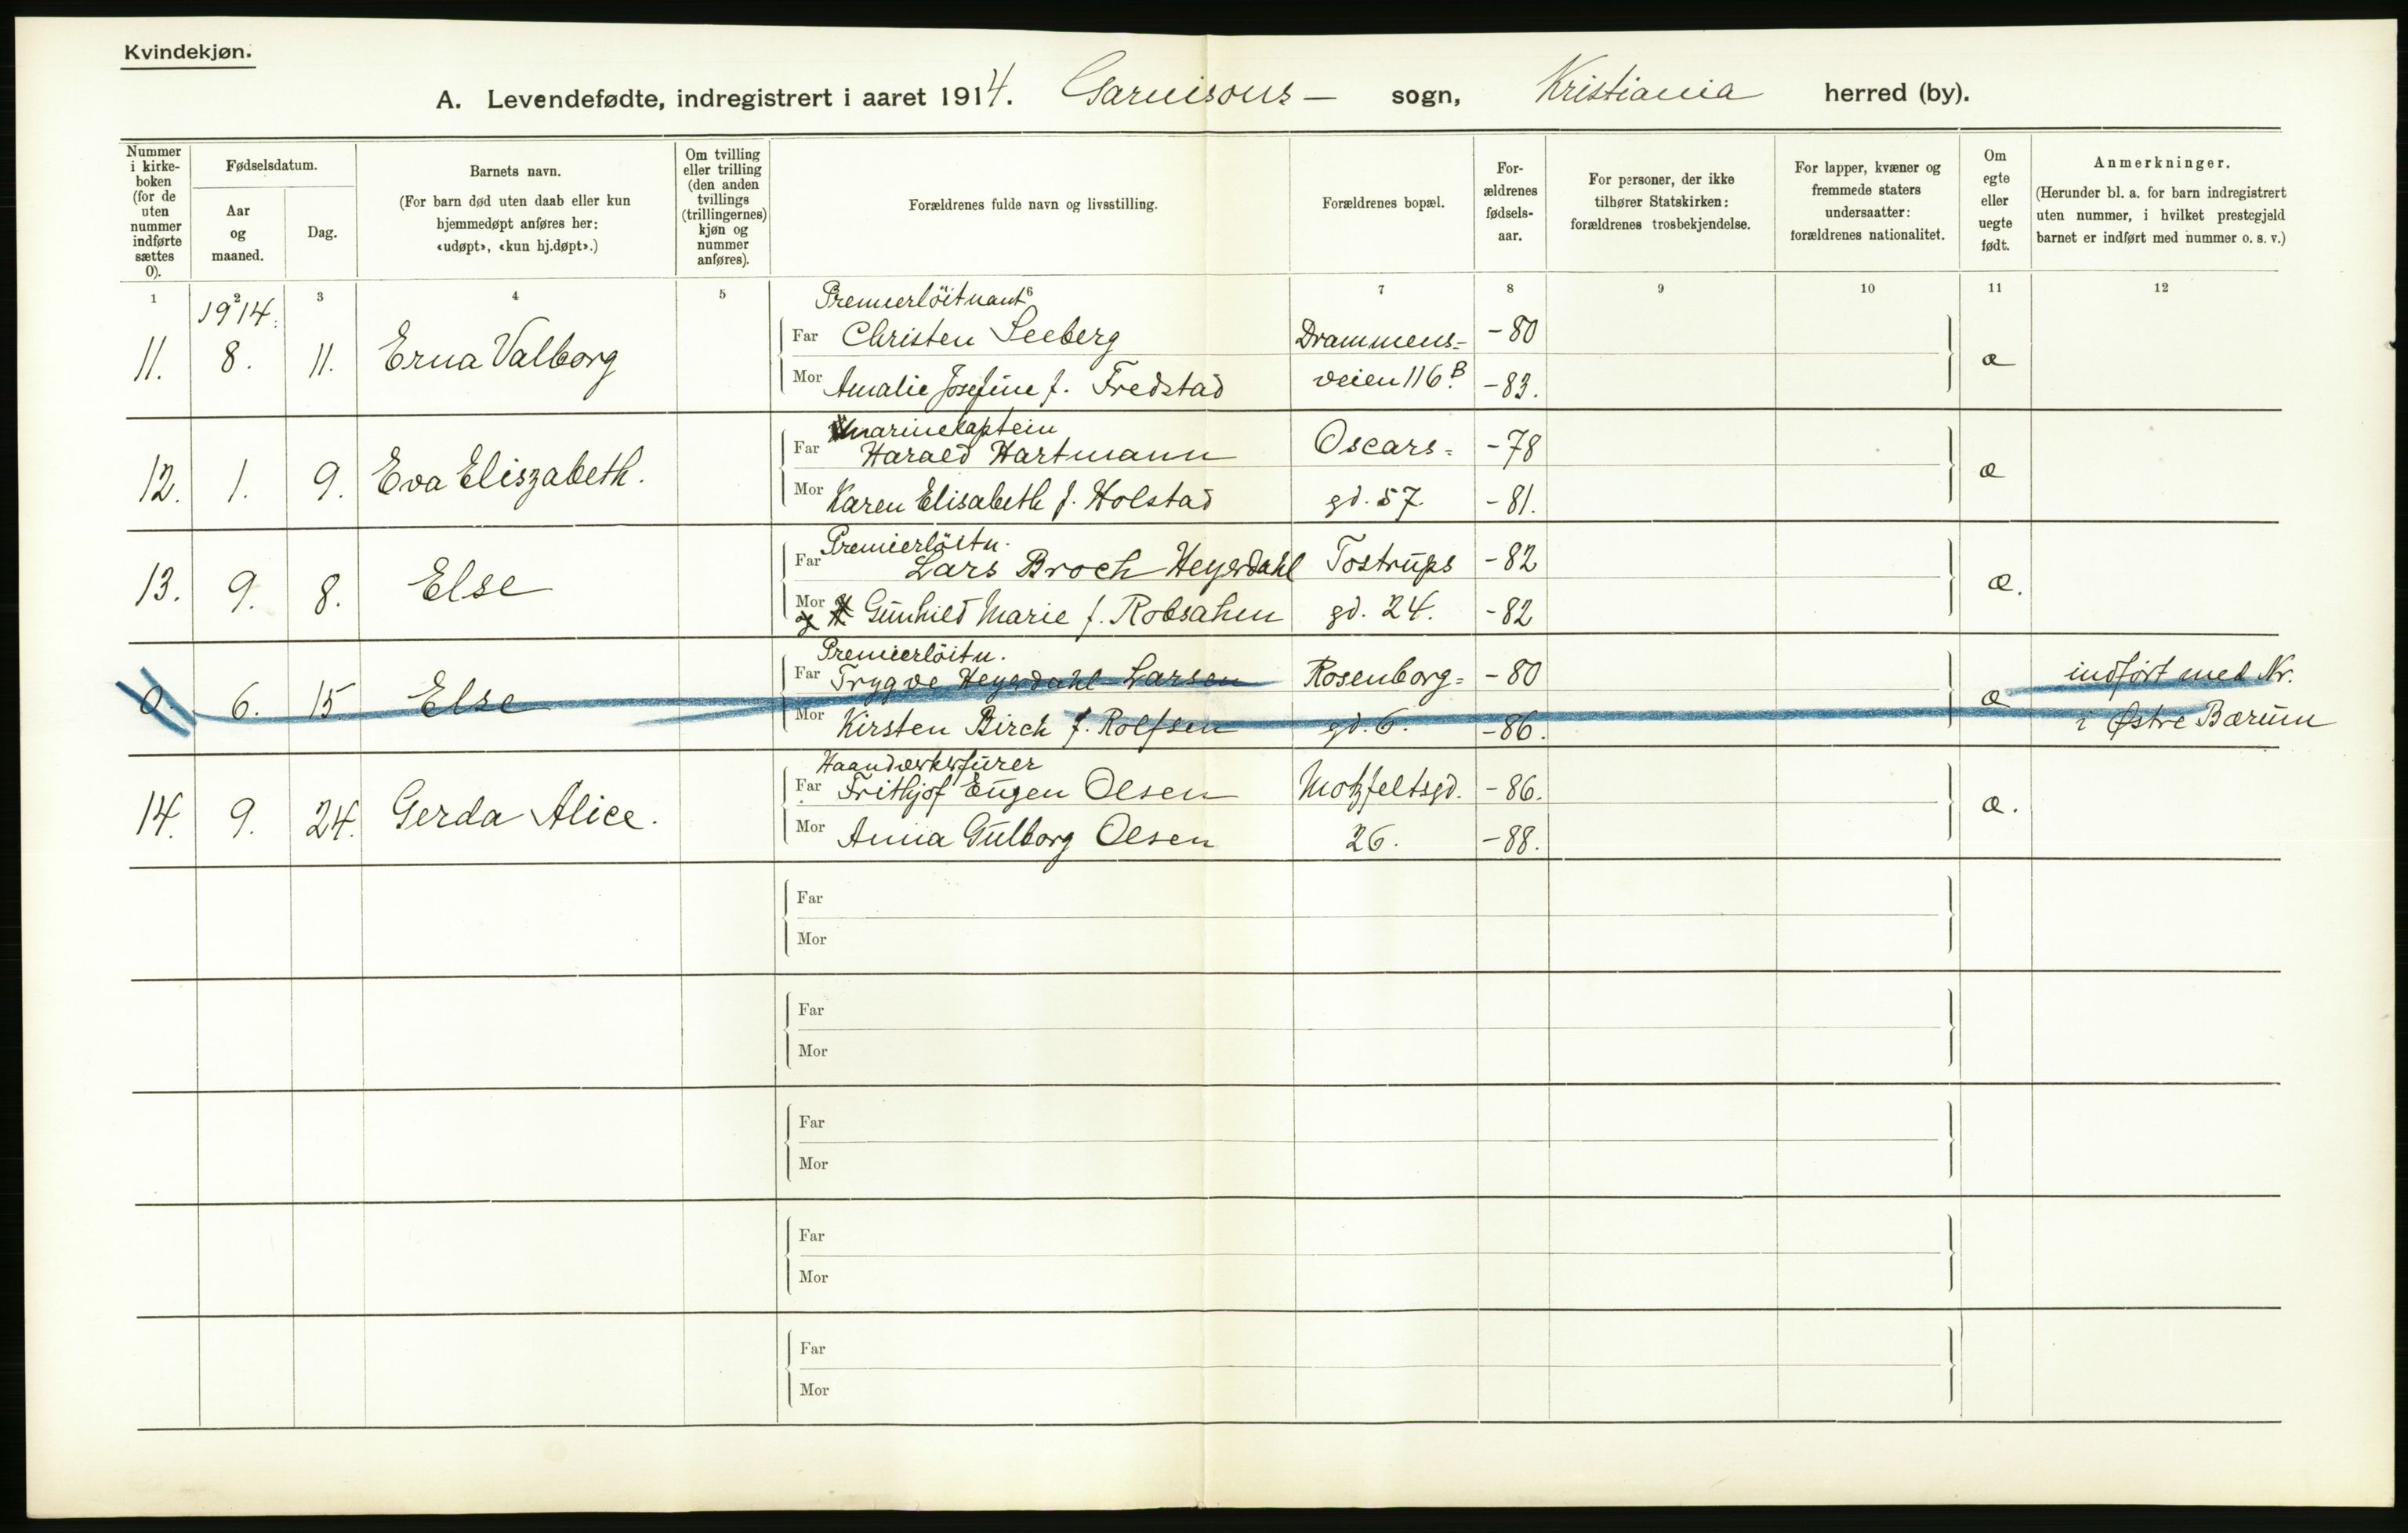 Kvindekjøn.
A. Levendefødte, indregistrert i aaret 1914. Garnisons- sogn, Kristiania herred (by).
Nummer i kirke-boken (for de uten nummer indførte sættes 0).
Fødselsdatum.
Aar og maaned.
Dag.
Barnets navn.
(For barn død uten daab eller kun hjemmedøpt anføres her: «udøpt», «kun hj.døpt».)
Om tvilling eller trilling (den anden tvillings (trillingernes) kjøn og nummer anføres).
Forældrenes fulde navn og livsstilling.
Forældrenes bopæl.
For-ældrenes fødsels-aar.
For personer, der ikke tilhører Statskirken: forældrenes trosbekjendelse.
For lapper, kvæner og fremmede staters undersaatter: forældrenes nationalitet.
Om egte eller uegte født.
Anmerkninger.
(Herunder bl. a. for barn indregistrert uten nummer, i hvilket prestegjeld barnet er indført med nummer o. s. v.)
1 2 3 4 5 6 7 8 9 10 11 12
1914.
Premierlöitnant
11. 8. 11. Erna Valborg Far Christen Seeberg Drammens= -80 æ
Mor Amalie Josefine f. Fredstad veien 116B. -83.
Marinekaptein
12. 1. 9. Eva Eliszabeth. Far Harald Hartmann Oscars= -78 æ
Mor Karen Elisabeth f. Holstad gd. 57. -81.
Premierlöitn.
13. 9. 8. Else Far Lars Broch Heyerdahl Tostrups -82 æ.
Mor Gunhild Marie f. Robsahm gd. 24. -82
Premierlöitn.
0. 6. 15 Else Far Trygve Heyerdahl-Larsen Rosenborg= -80 æ indført med Nr.
Mor Kirsten Birch f. Rolfsen gd. 6. -86. i Østre Bærum
Haandverksfurer
14. 9. 24. Gerda Alice. Far Frithjof Eugen Olsen Motzfeltsgd. -86. æ.
Mor Anna Gulborg Olsen 26. -88.
Far
Mor
Far
Mor
Far
Mor
Far
Mor
Far
Mor